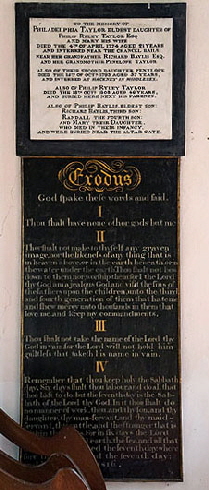 TO THE MEMORY OF
PHILADELPHIA TAYLOR, ELDEST DAUGHTER OF
PHILIP RISLEY TAYLOR ESQ:
BY MARY HIS WIFE
DIED THE 4TH OF APRIL 1774 AGED 21 YEARS
AND INTERRED NEAR THE CHANCEL RAILS
NEAR HER GRANDFATHER RICHARD BAYLIE ESQ.
AND HER GRANDMOTHER PENELOPE TAYLOR.
ALSO OF THEIR SECOND DAUGHTER PENELOPE
DIED THE OF 1783 AGED YEARS,
AND INTERRED AT HACKNEY IN MIDDLESEX.
ALSO OF PHILIP RYLEY TAYLOR
DIED THE OF AGED YEARS,
AND
ALSO OF PHILIP BAYLIE, ELDEST SON:
RICHARD BAYLIE, THIRD SON:
RANDALL THE FOURTH SON:
AND MARY THEIR DAUGHTER,
WHO DIED IN THEIR INFANCY
AND WERE BURIED NEAR THE ALTAR GATE.
Exodus
God spake these words and said.
I
Thou shalt have none other gods but me
II
Thou shalt not make to thyself any graven
image, nor the likeness of any thing that is
in heaven above or in the earth beneath or in
the water under the earth Thou shalt not bow
down to them nor worship them for I the Lord
thy God am a jealous God and visit the sins of
the fathers upon the children unto the third
and fourth generation of them that hate me
and shew mercy unto thousands in them that
love me and keep my commandments.
III
Thou shalt not take the name of the Lord thy
God in vain for the Lord will not hold him
guiltless that taketh his name in vain.
IV
Remember that thou keep holy the Sabbath
day, Six days shalt thou labour and do all that
thou hast to do but the seventh day is the Sab-
bath of the Lord thy God In it thou shalt do
no manner of work, thou and thy son, and thy
daughter, thy man-servant and thy maid-
servant, thy cattle and the stranger that is
in six days the Lord
earth the sea and all that
the seventh day where
the seventh day,